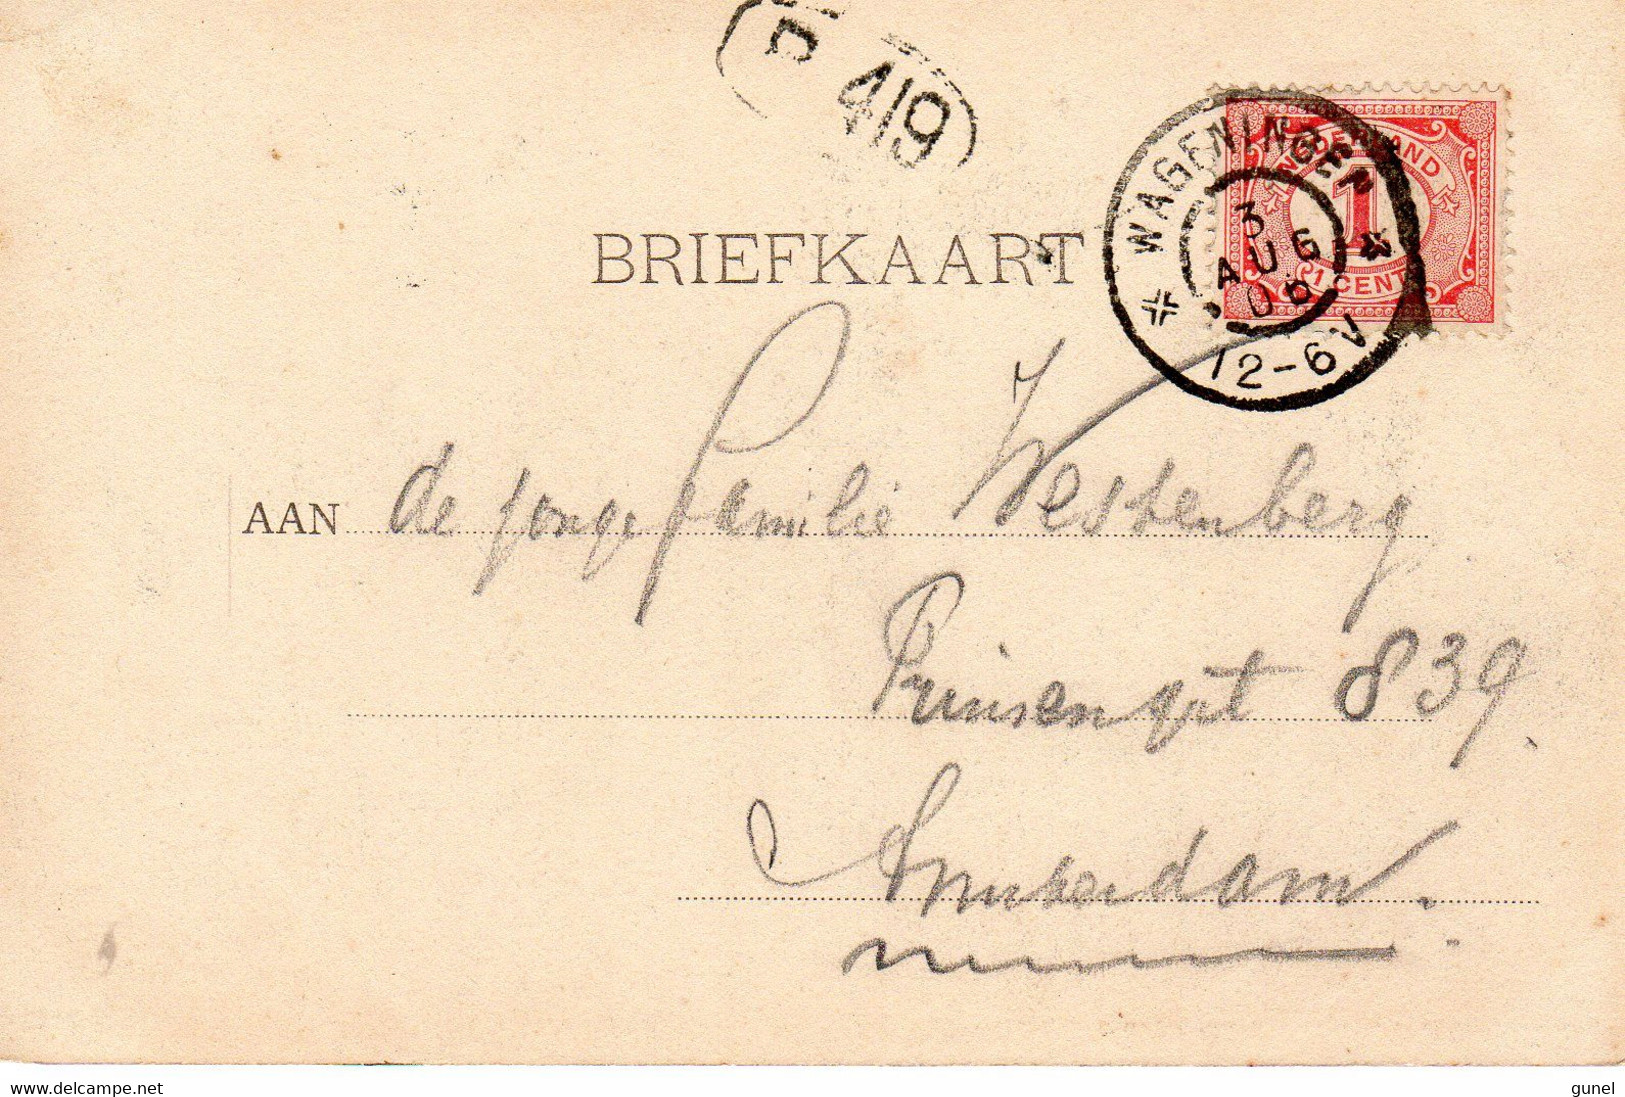 419
WAGENINGEN
3
AUG
06
12-6V
NEDERLAND
1
1 CENT
BRIEFKAART
AAN de jonge familie Westenberg
Prinsengrt 839.
Amsterdam.
www.delcampe.net
gunel